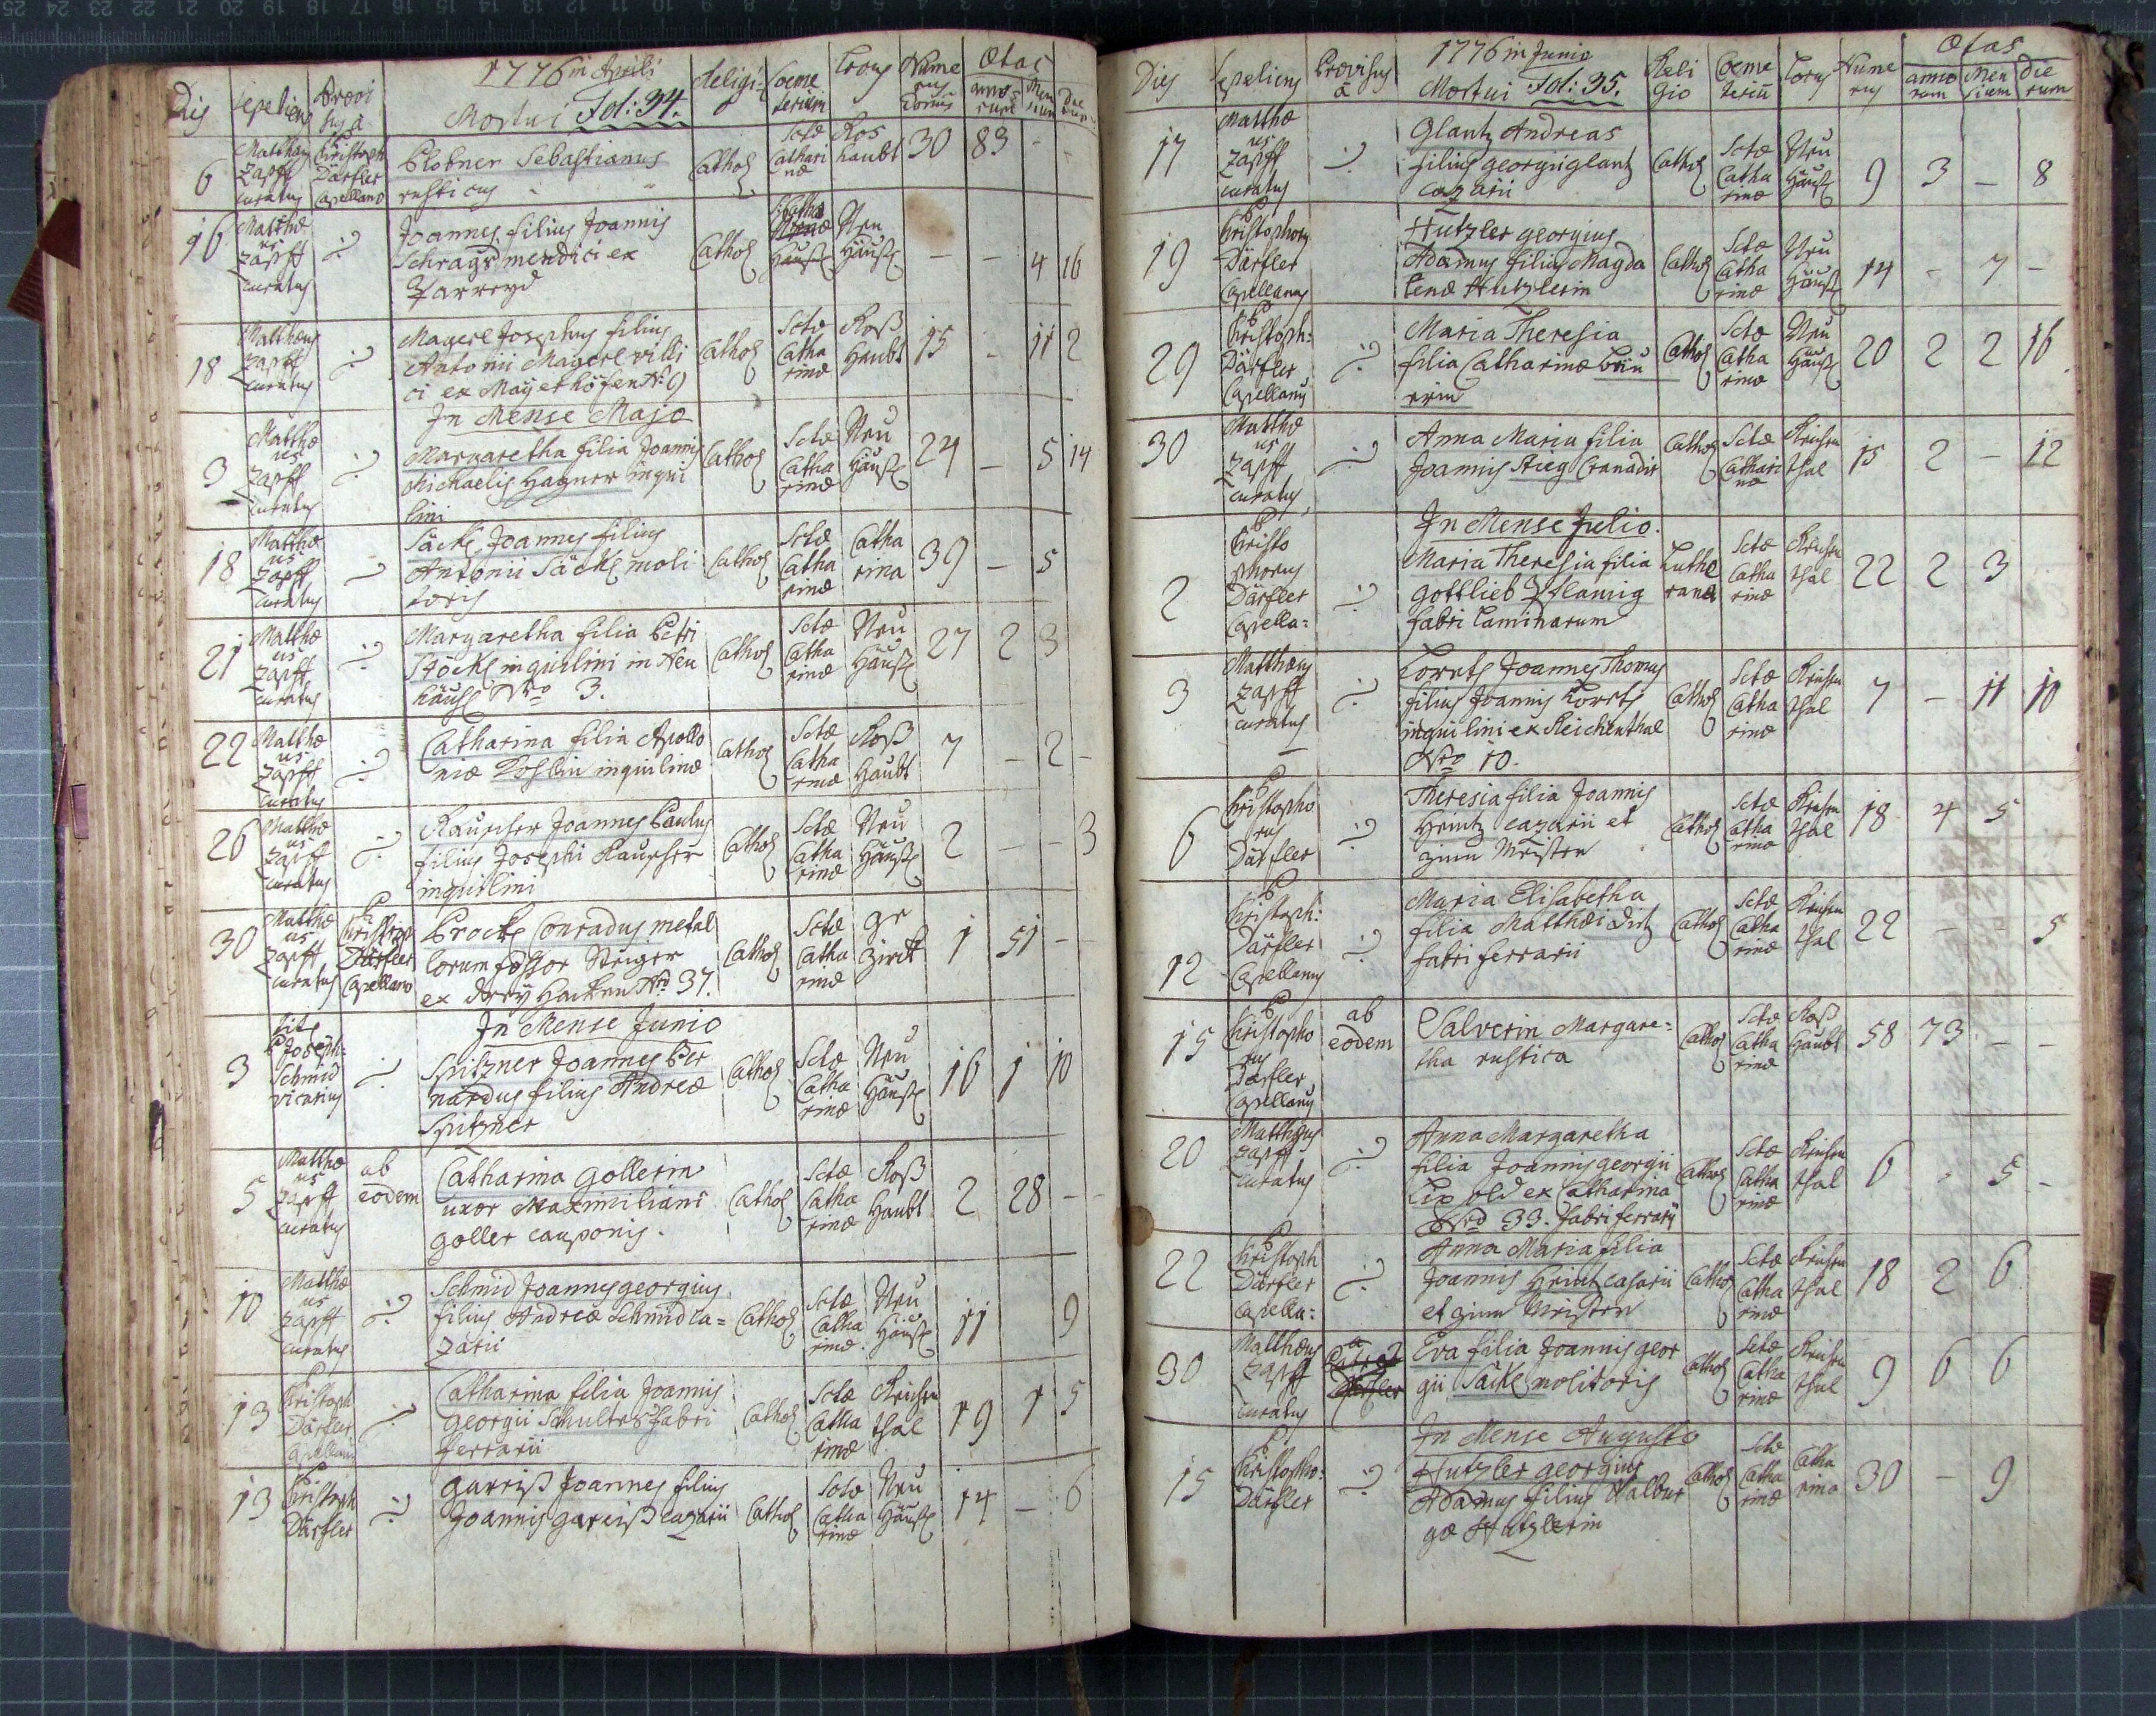 1776 in Aprili
Mortui Fol: 34.
Dies Sepeliens Provisus à Religio Coemeterium Locus Numerus Domus Ætas annorum Mensium Dierum
6 Matthæus Zapff curatus P Christoph Därfler Capellano
Plobner Sebastianus
rusticus
Cathol Sctæ Catharinæ Roshaubt 30 83 - -
16 Matthæus Zapff curatus
Joannes filius Joannis
Schrags mendici ex
Cathol Neu Häußl - - 4 16
18 Matthæus Zapff curatus
Magerl Josephus filius
Antonii Magerl villi
ci ex Mayerhöfen Nr: 9
Cathol Sctæ Catharinæ Roßhaubt 15 - 11 2
In Mense Majo
3 Matthæus Zapff curatus
Margaretha filia Joannis
Michaelis Hagner inqui
lini
Cathol Sctæ Catharinæ Neu Häußl 24 - 5 14
18 Matthæus Zapff curatus
Säckl Joannes filius
Antonii Säckl moli
toris
Cathol Sctæ Catharinæ Catharina 39 - 5
21 Matthæus Zapff curatus
Margaretha filia Petri
Stöckl inquilini in Neu
häusl Nro 3.
Cathol Sctæ Catharinæ Neu Häußl 27 2 3
22 Matthæus Zapff curatus
Catharina filia Apollo
niæ inquilinæ
Cathol Sctæ Catharinæ Roß Haubt 7 - 2 -
26 Matthæus Zapff curatus
Rauscher Joannes Paulus
filius Josephi Rauscher
inquilini
Cathol Sctæ Catharinæ Neu Häußl 2 - - 3
30 Matthæus Zapff curatus P Christoph Därfler Capellano
Prockl Conradus metal
lorum fossor Steiger
ex Drey Hacken Nro 37.
Cathol Sctæ Catharinæ 1 51 - -
In Mense Junio
3 P Joseph: Schmid vicarius
Spitzner Joannes Ber
nardus filius Andreæ
Spitzner
Cathol Sctæ Catharinæ Neu Häußl 16 1 10
5 Matthæus Zapff curatus ab eodem
Catharina Gollerin
uxor Maximiliani
Goller cauponis.
Cathol Sctæ Catharinæ Roß Haubt 2 28 - -
10 Matthæus Zapff curatus
Schmid Joannes georgius
filius Andreæ Schmid ca=
zarii
Cathol Sctæ Catharinæ Neu Häußl 11 9
13 P Christoph Därfler Capellanus
Catharina filia Joannis
Georgii Schultes fabri
ferrarii
Cathol Sctæ Catharinæ Reichenthal 19 1 5
13 P Christoph Därfler
Garriß Joannes filius
Joannis Garriß cazarii
Cathol Sctæ Catharinæ Neu Häußl 14 - 6
1776 in Junio
Mortui Fol: 35.
Dies Sepeliens Provisus à Religio Coemeteriũ Locus Numerus Ætas annorum Mensium Dierum
17 Matthæus Zapff curatus
Glantz Andreas
filius georgii glantz
cazarii
Cathol Sctæ Catharinæ Neu Häußl 9 3 - 8
19 P Christophorus Därfler Capellanus
Hutzler georgius
Adamus filius Magda
lenæ Hutzlerin
Cathol Sctæ Catharinæ Neu Häußl 14 - 7 -
29 P Christoph: Därfler Capellanus
Maria Theresia
filia Catharinæ
Cathol Sctæ Catharinæ Neu Häußl 20 2 2 16
30 Matthæus Zapff curatus
Anna Maria filia
Joannis Stieg
Cathol Sctæ Catharinæ Reichenthal 15 2 - 12
In Mense Julio.
2 P Christophorus Därfler Capella=
Maria Theresia filia
gottlieb
fabri laminarum
Lutherana Sctæ Catharinæ Reichenthal 22 2 3
3 Matthæus Zapff curatus
Lorentz Joannes Thomas
filius Joannis Lorentz
inquilini ex Reichenthal
Nro 10.
Cathol Sctæ Catharinæ Reichenthal 7 - 11 10
6 P Christophorus Därfler
Theresia filia Joannis
Heintz cazarii et
Cathol Sctæ Catharinæ Reichenthal 18 4 5
12 P Christoph: Därfler Capellanus
Maria Elisabetha
filia Matthæi Dietz
fabri ferrarii
Cathol Sctæ Catharinæ Reichenthal 22 - - 5
15 P Christophorus Därfler Capellanus ab eodem
Salverin Margare=
tha rustica
Cathol Sctæ Catharinæ Roß Haubt 58 73 - -
20 Matthæus Zapff curatus
Anna Margaretha
filia Joannis georgii
Lippold ex Catharina
Nro 33. fabri ferrarii
Cathol Sctæ Catharinæ Reichenthal 6 - 5 -
22 P Christoph Därfler Capella=
Anna Maria filia
Joannis Heintz casarii
et
Cathol Sctæ Catharinæ Reichenthal 18 2 6
30 Matthæus Zapff curatus
Eva filia Joannis geor
gii Säckl molitoris
Cathol Sctæ Catharinæ Reichenthal 9 6 6
In Mense Augusto
15 P Christopho: Därfler
Hutzler georgius
Adamus filius Walbur
gæ Hutzlerin
Cathol Sctæ Catharinæ Catharina 30 - 9